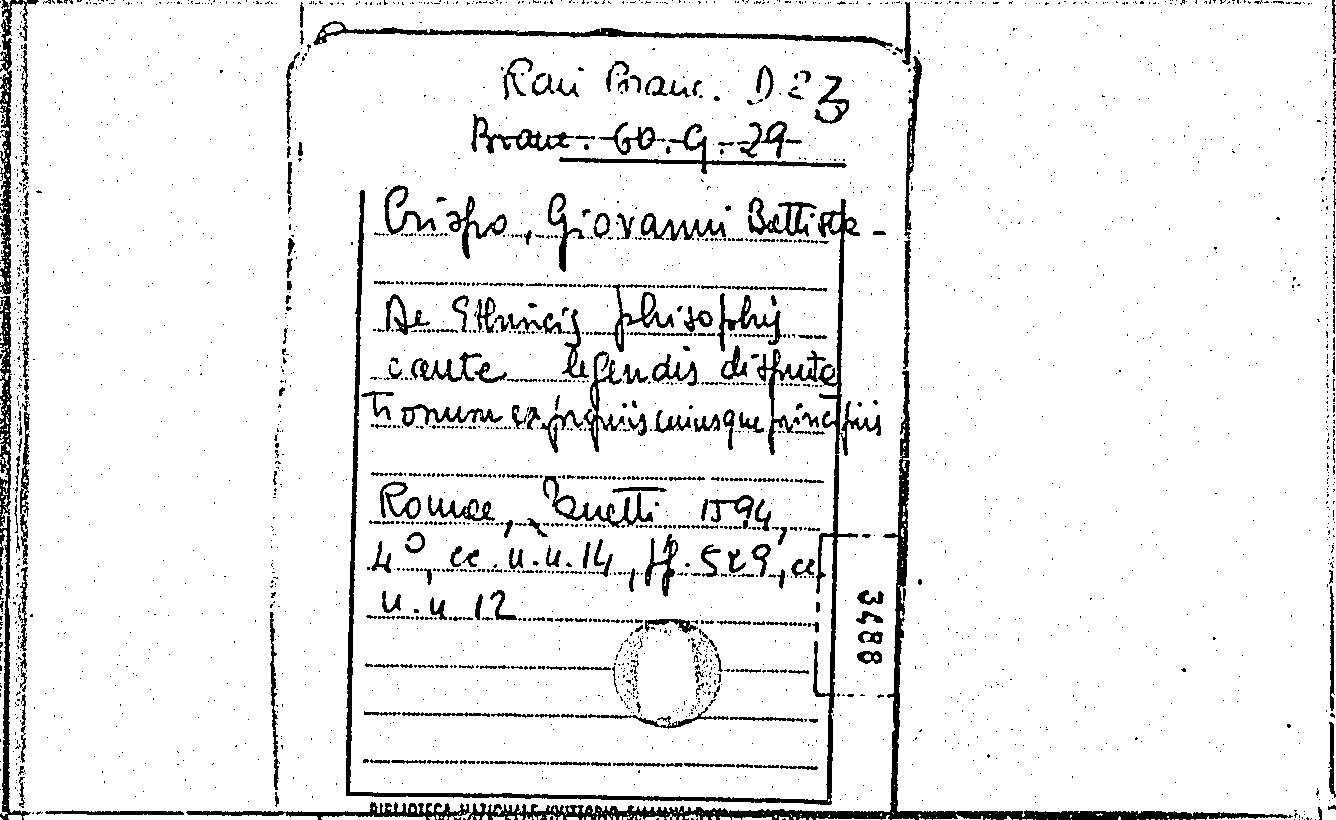 Rari Branc. D 23
Branc. 60. G. 29
Crispo, Giovanni Battista -
De Ethnicis phisophis
caute legendis disputa
tionum ex propriis cuiusque principiis
Romae, Zanetti 1594,
4°, cc. n.n. 14, pp. 529, cc.
n.n 12
3488
BIBLIOTECA NAZIONALE VITTORIO EMANUELE